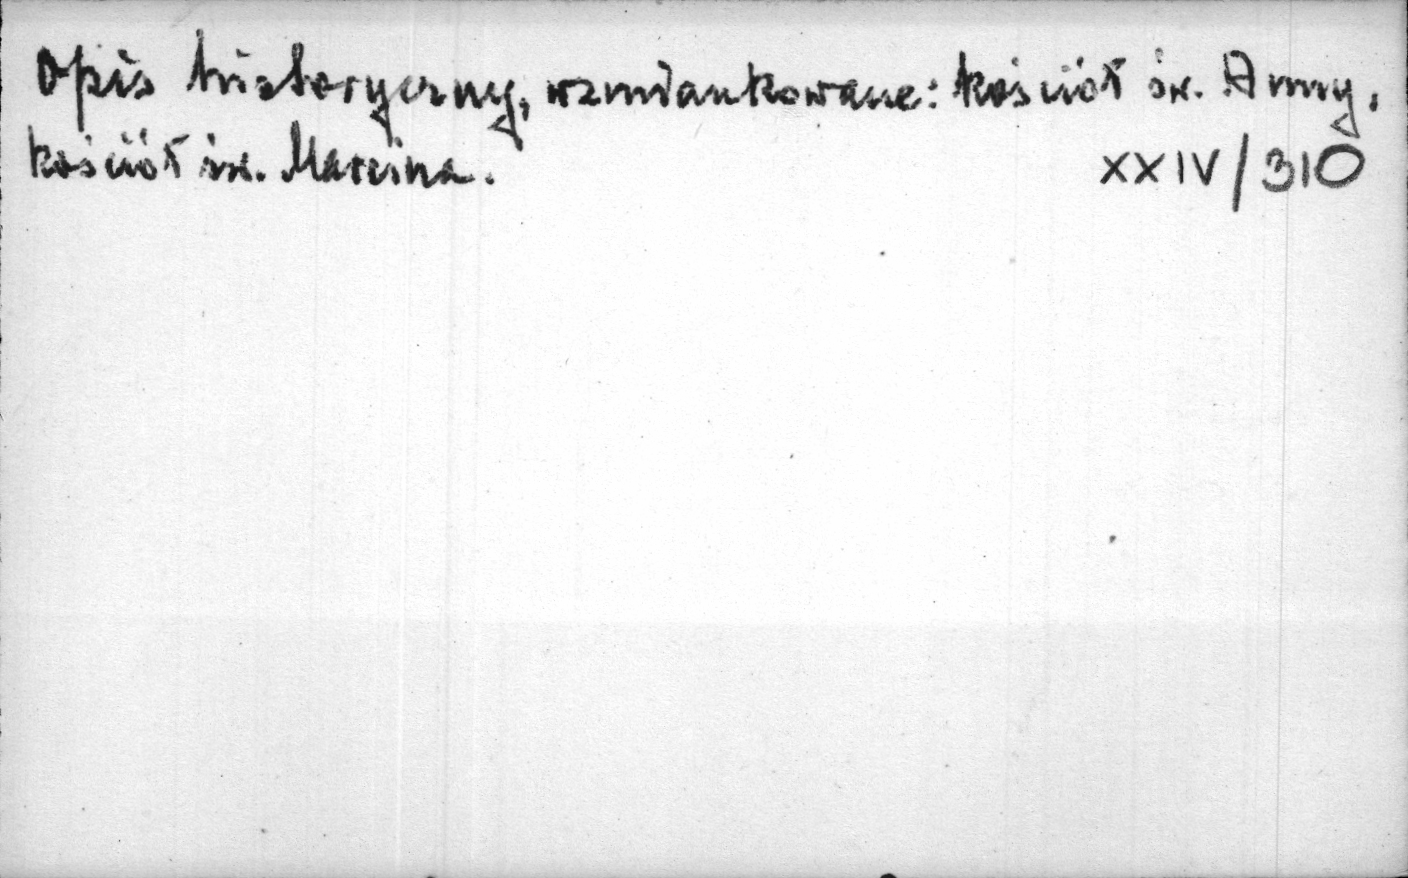 Opis historyczny, wzmiankowane: kościół św. Anny,
kościół św. Marcina.
XXIV/310